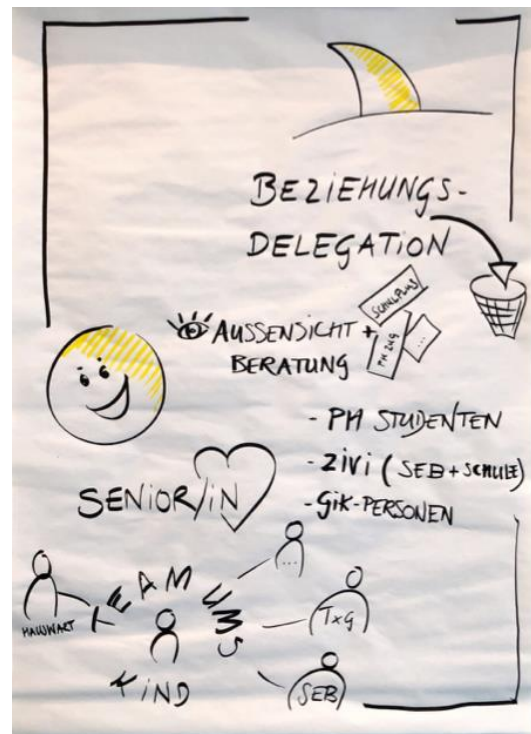 BEZIEHUNGS-
DELEGATION
AUSSENSICHT +
BERATUNG
SCHULPLUS
PH ZUG
...
- PH STUDENTEN
- ZIVI (SEB + SCHULE)
- GiK-PERSONEN
SENIOR/iN
...
HAUSWART
TEAM UMS
KiND
TxG
SEB